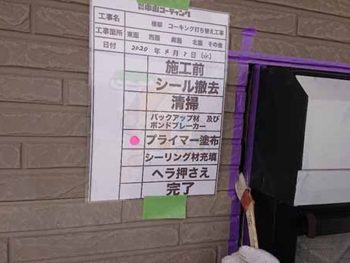 工事名 種類 コーキング打ち替え工事
工事箇所 東面 西面 南面 北面 その他
日付 2020年
施工前
シール撤去
清掃
バックアップ材 及び
ボンドブレーカー
プライマー塗布
シーリング材充填
ヘラ押さえ
完了